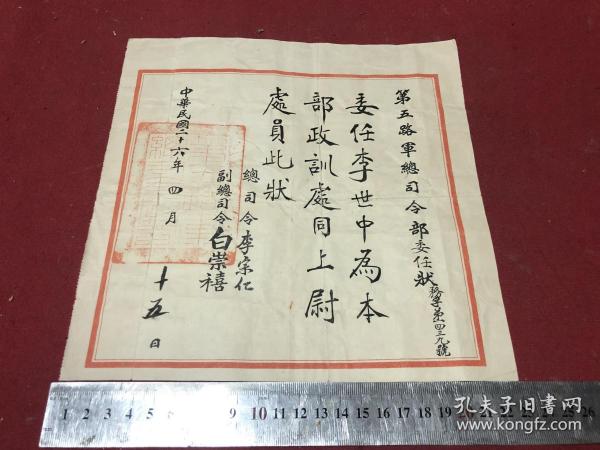 第五路軍總司令部委任狀
字第四三九號
委任李世中為本
部政訓處同上尉
處員此狀
總司令李宗仁
副總司令白崇禧
中華民國二十六年四月十五日
1 2 3 4 5 9 10 11 12 13 14 15 16 17 18 19
孔夫子旧书网
kongfz.com